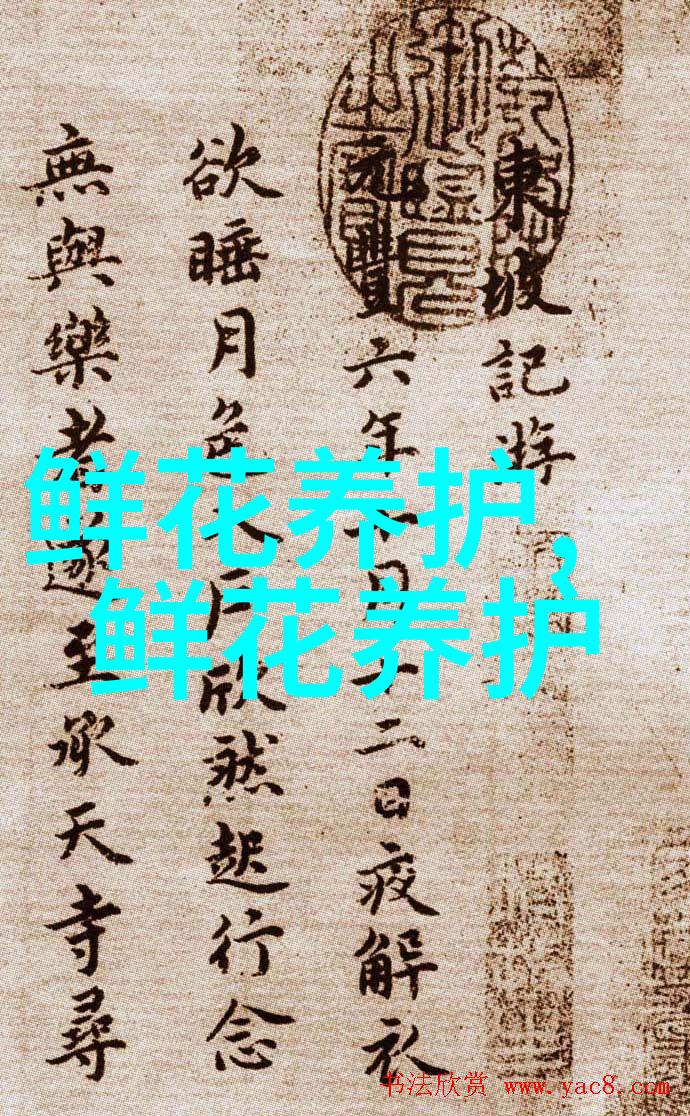 東坡記游
元豐六年十月十二日夜解衣
欲睡月色入户欣然起行念
無與樂者遂至承天寺尋
鲜花养护,
鲜花养护
书法欣赏 www.yac8.com